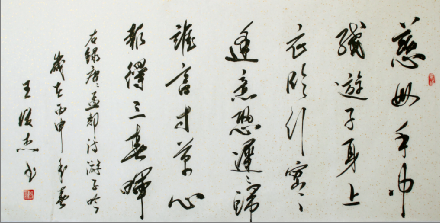 慈母手中
线游子身上
衣临行密〻
缝意恐迟〻归
谁言寸草心
报得三春晖
右录唐孟郊诗游子吟
岁在丙申年春
王